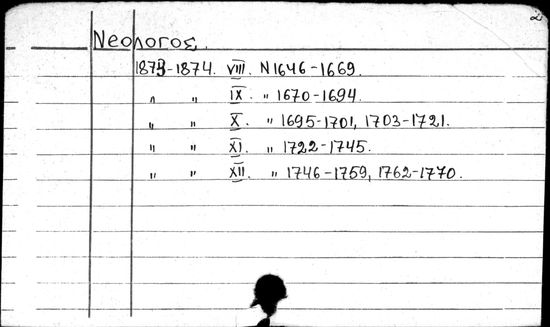 2
Νεολογος.
1873-1874. VIII. N 1646-1669.
" " IX. " 1670-1694.
" " X. " 1695-1701, 1703-1721.
" " XI. " 1722-1745.
" " XII. " 1746-1759, 1762-1770.